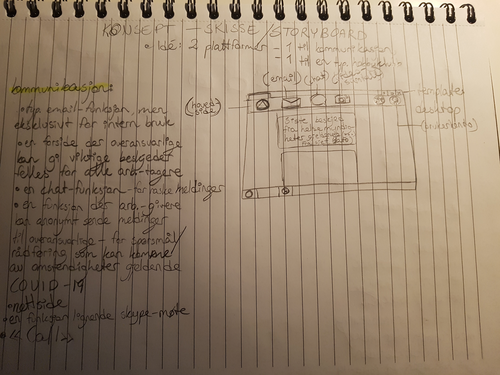 KONSEPT - SKISSE/STORYBOARD
• Idé: 2 plattformer - 1 til kommunikasjon
- 1 til en type
(email) (chat)
kommunikasjon:
• type email-funksjon, men
eksklusivt for intern bruk
• en forside der overansvarlige
kan gi viktige beskjeder
felles for alle arb-tagere
• en chat-funksjon - for raske meldinger
• en funksjon der arb-givere
kan anonymt sende meldinger
til overansvarlige - for spørsmål/
rådføring som kan komme
av omstendigheter gjeldende
COVID-19
• nettside
• en funksjon lignende skype-møte
• « Call »
(hoved-
side)
Siste beskjed
template
desktop